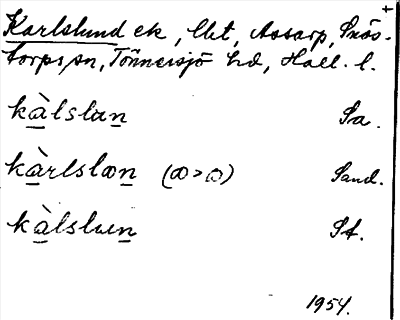 +
Karlslund ek, lht, Assarp, Snös-
torps sn, Tönnersjö hd, Hall. l.
kàlslun Sa.
kàrlslon Sand.
kàlslun St.
1954.